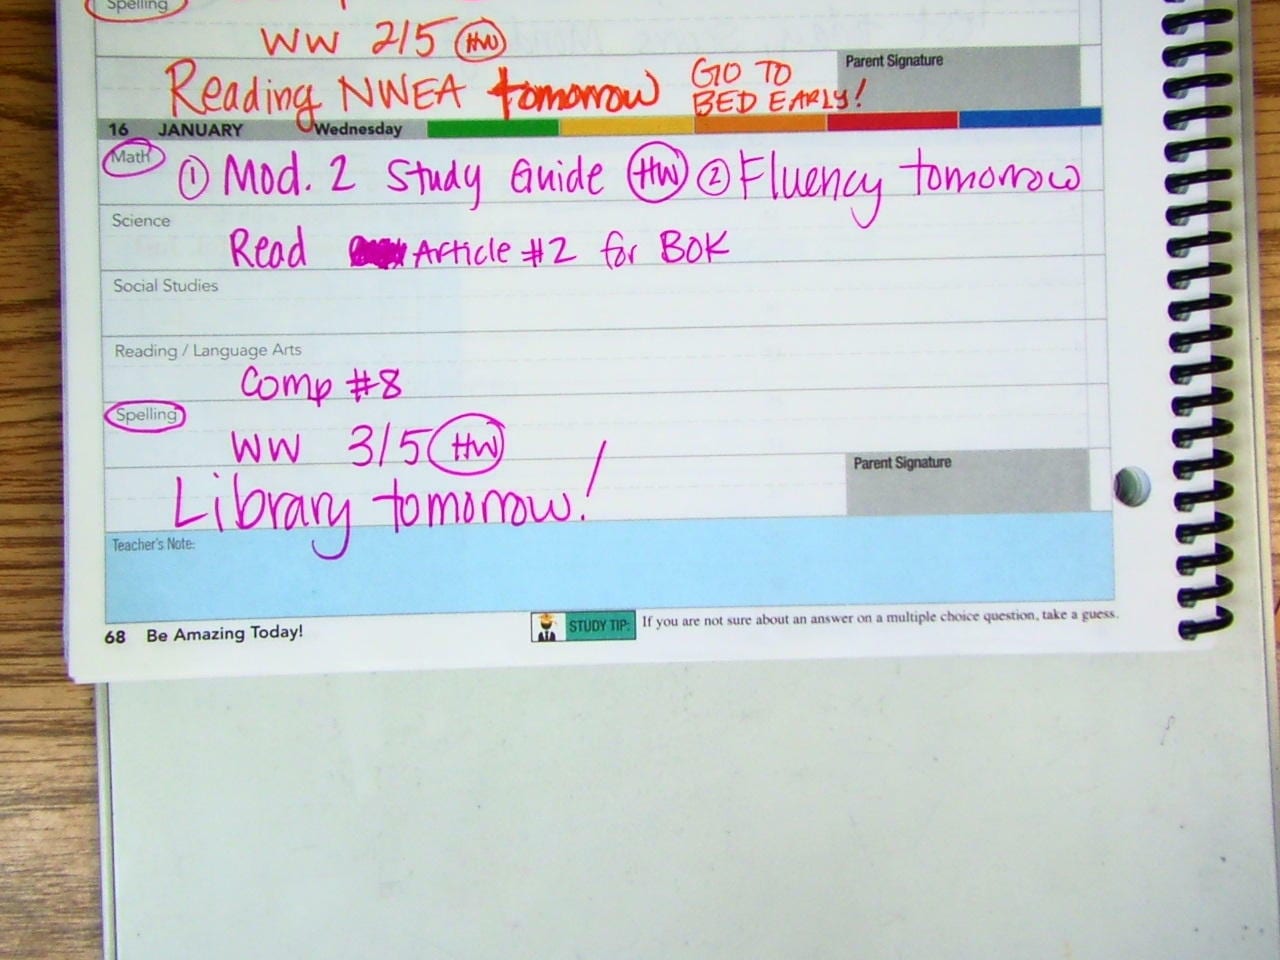 Spelling
WW 2/5 HW
Reading NWEA tomorrow GO TO BED EARLY!
Parent Signature
16 JANUARY Wednesday
Math
① Mod. 2 Study Guide HW ② Fluency tomorrow
Science
Read Article #2 for BOK
Social Studies
Reading / Language Arts
Comp #8
Spelling
WW 3/5 HW
Parent Signature
Library tomorrow!
Teacher's Note:
68 Be Amazing Today!
STUDY TIP: If you are not sure about an answer on a multiple choice question, take a guess.